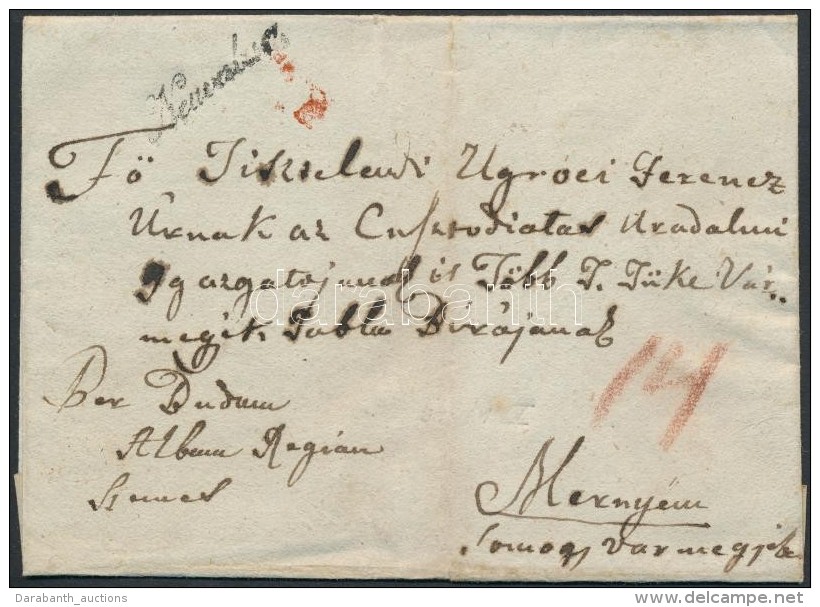 Kecskemét
Fö Tisztelendi Ugróci Ferencz
Úrnak az Custodiatus Uradalmi
Igazgatojanak és Több T. Tüke Vár..
megék Tabla Birájanak
Per Budam
Albam Regiam
Szemes
14
Mernyém
Somogy Varmegyéb
darabanth
Darabanth_auctions
delcampe.net